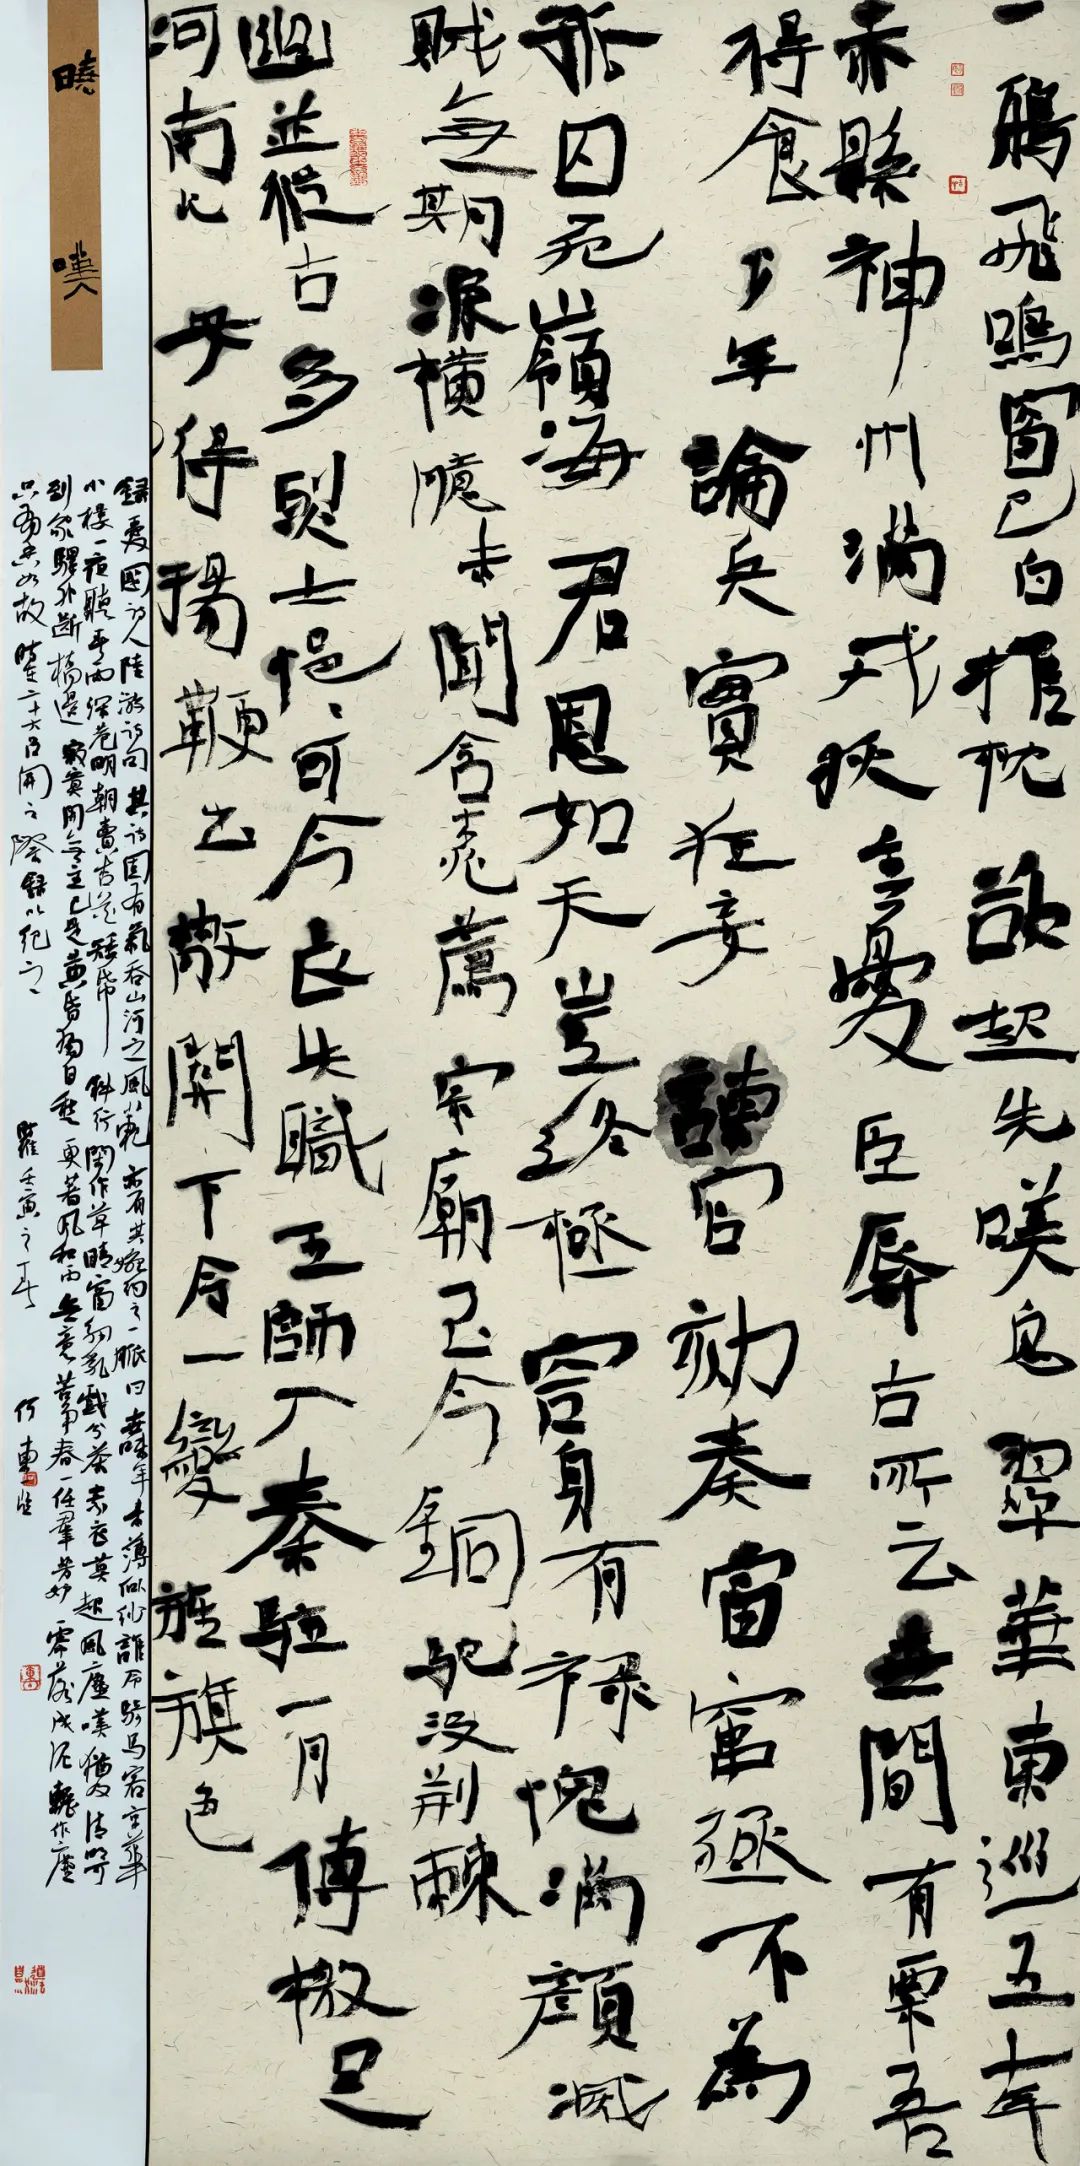 一鴉飛鳴窗已白推枕欲起先嘆息翠華東巡五十年
赤縣神州滿戎狄主憂臣辱古所云世間有粟吾
得食少年論兵實狂妄諫官劾奏當竄殛不為
孤囚死嶺海君恩如天豈終極容身有祿愧滿顏滅
賊無期淚橫臆未聞含桃薦宗廟至今銅駝沒荊棘
幽並從古多烈士悒悒可令長失職王師入秦駐一月傳檄足
河南北安得揚鞭出散關下令一變旌旗色
曉嘆
錄愛國詩人陸游詩句其詩固有氣吞山河之風範亦有其婉約之一脈曰世味年來薄似紗誰令騎馬客京華
小樓一夜聽春雨深巷明朝賣杏花矮紙斜行閑作草晴窗細乳戲分茶素衣莫起風塵嘆猶及清明可
到家驛外斷橋邊寂寞開無主已是黃昏獨自愁更著風和雨無意苦爭春一任群芳妒零落成泥碾作塵
只有香如故時在二十大召開之際錄以紀之歲壬寅之 何東